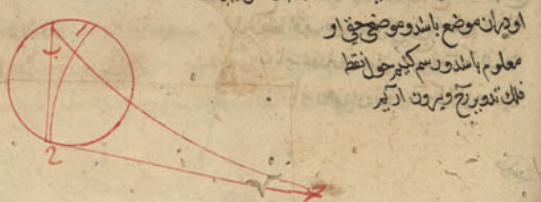 او دران موضع باشد و موضعی حقی او
معلوم باشد و رسم کنیم حول نقط
فلک تدویر آخ و بیرون از یم
ا
ب
ح